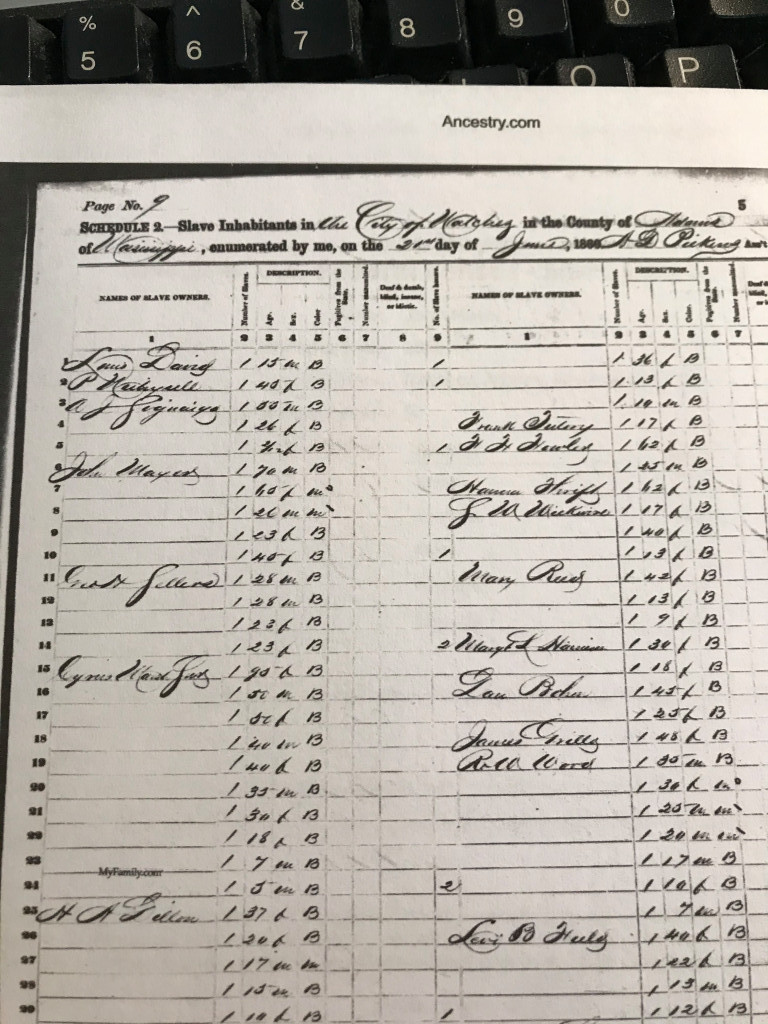 % 5
^ 6
& 7
8
9
0
O
P
Ancestry.com
Page No. 9
5
SCHEDULE 2.—Slave Inhabitants in the City of Natchez in the County of Adams
of Mississippi, enumerated by me, on the day of June, 1860 Ass't
NAMES OF SLAVE OWNERS.
DESCRIPTION.
Number of Slaves.
Age.
Sex.
Color
Fugitives from the State.
Number manumitted.
Deaf & dumb, blind, insane, or idiotic.
No. of Slave houses.
NAMES OF SLAVE OWNERS.
DESCRIPTION.
Number of Slaves.
Age.
Sex.
Color.
Fugitives from the State.
Number manumitted.
1 2 3 4 5 6 7 8 9 1 2 3 4 5 6 7
1 Louis David 1 15 m B 1 1 36 f B
2 P 1 40 f B 1 1 13 f B
3 A J 1 55 m B 1 10 m B
4 1 26 f B Frank 1 17 f B
5 1 f B 1 1 62 f B
6 John Mayers 1 70 m B 1 25 m B
7 1 65 f m Hanna 1 62 f B
8 1 26 m m 1 17 f B
9 1 23 f B 1 40 f B
10 1 40 f B 1 1 13 f B
11 1 28 m B Mary 1 42 f B
12 1 28 m B 1 13 f B
13 1 23 f B 1 9 f B
14 1 23 f B 2 1 30 f B
15 Cyrus 1 95 f B 1 18 f B
16 1 50 m B 1 45 f B
17 1 50 f B 1 25 f B
18 1 40 m B James 1 48 f B
19 1 40 f B R. W. Wood 1 35 m B
20 1 35 m B 1 30 f m
21 1 30 f B 1 25 m m
22 1 18 f B 1 20 m m
23 1 7 m B 1 17 m B
MyFamily.com
24 1 5 m B 2 1 10 f B
25 H A Dillon 1 37 f B 1 7 m B
26 1 20 f B Levi B 1 40 f B
27 1 17 m m 1 22 f B
28 1 15 m B 1 13 m B
29 1 10 f B 1 1 12 f B